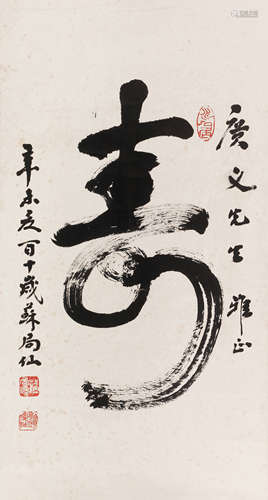 廣义先生雅正
寿
辛未夏百十歲蘇局仙